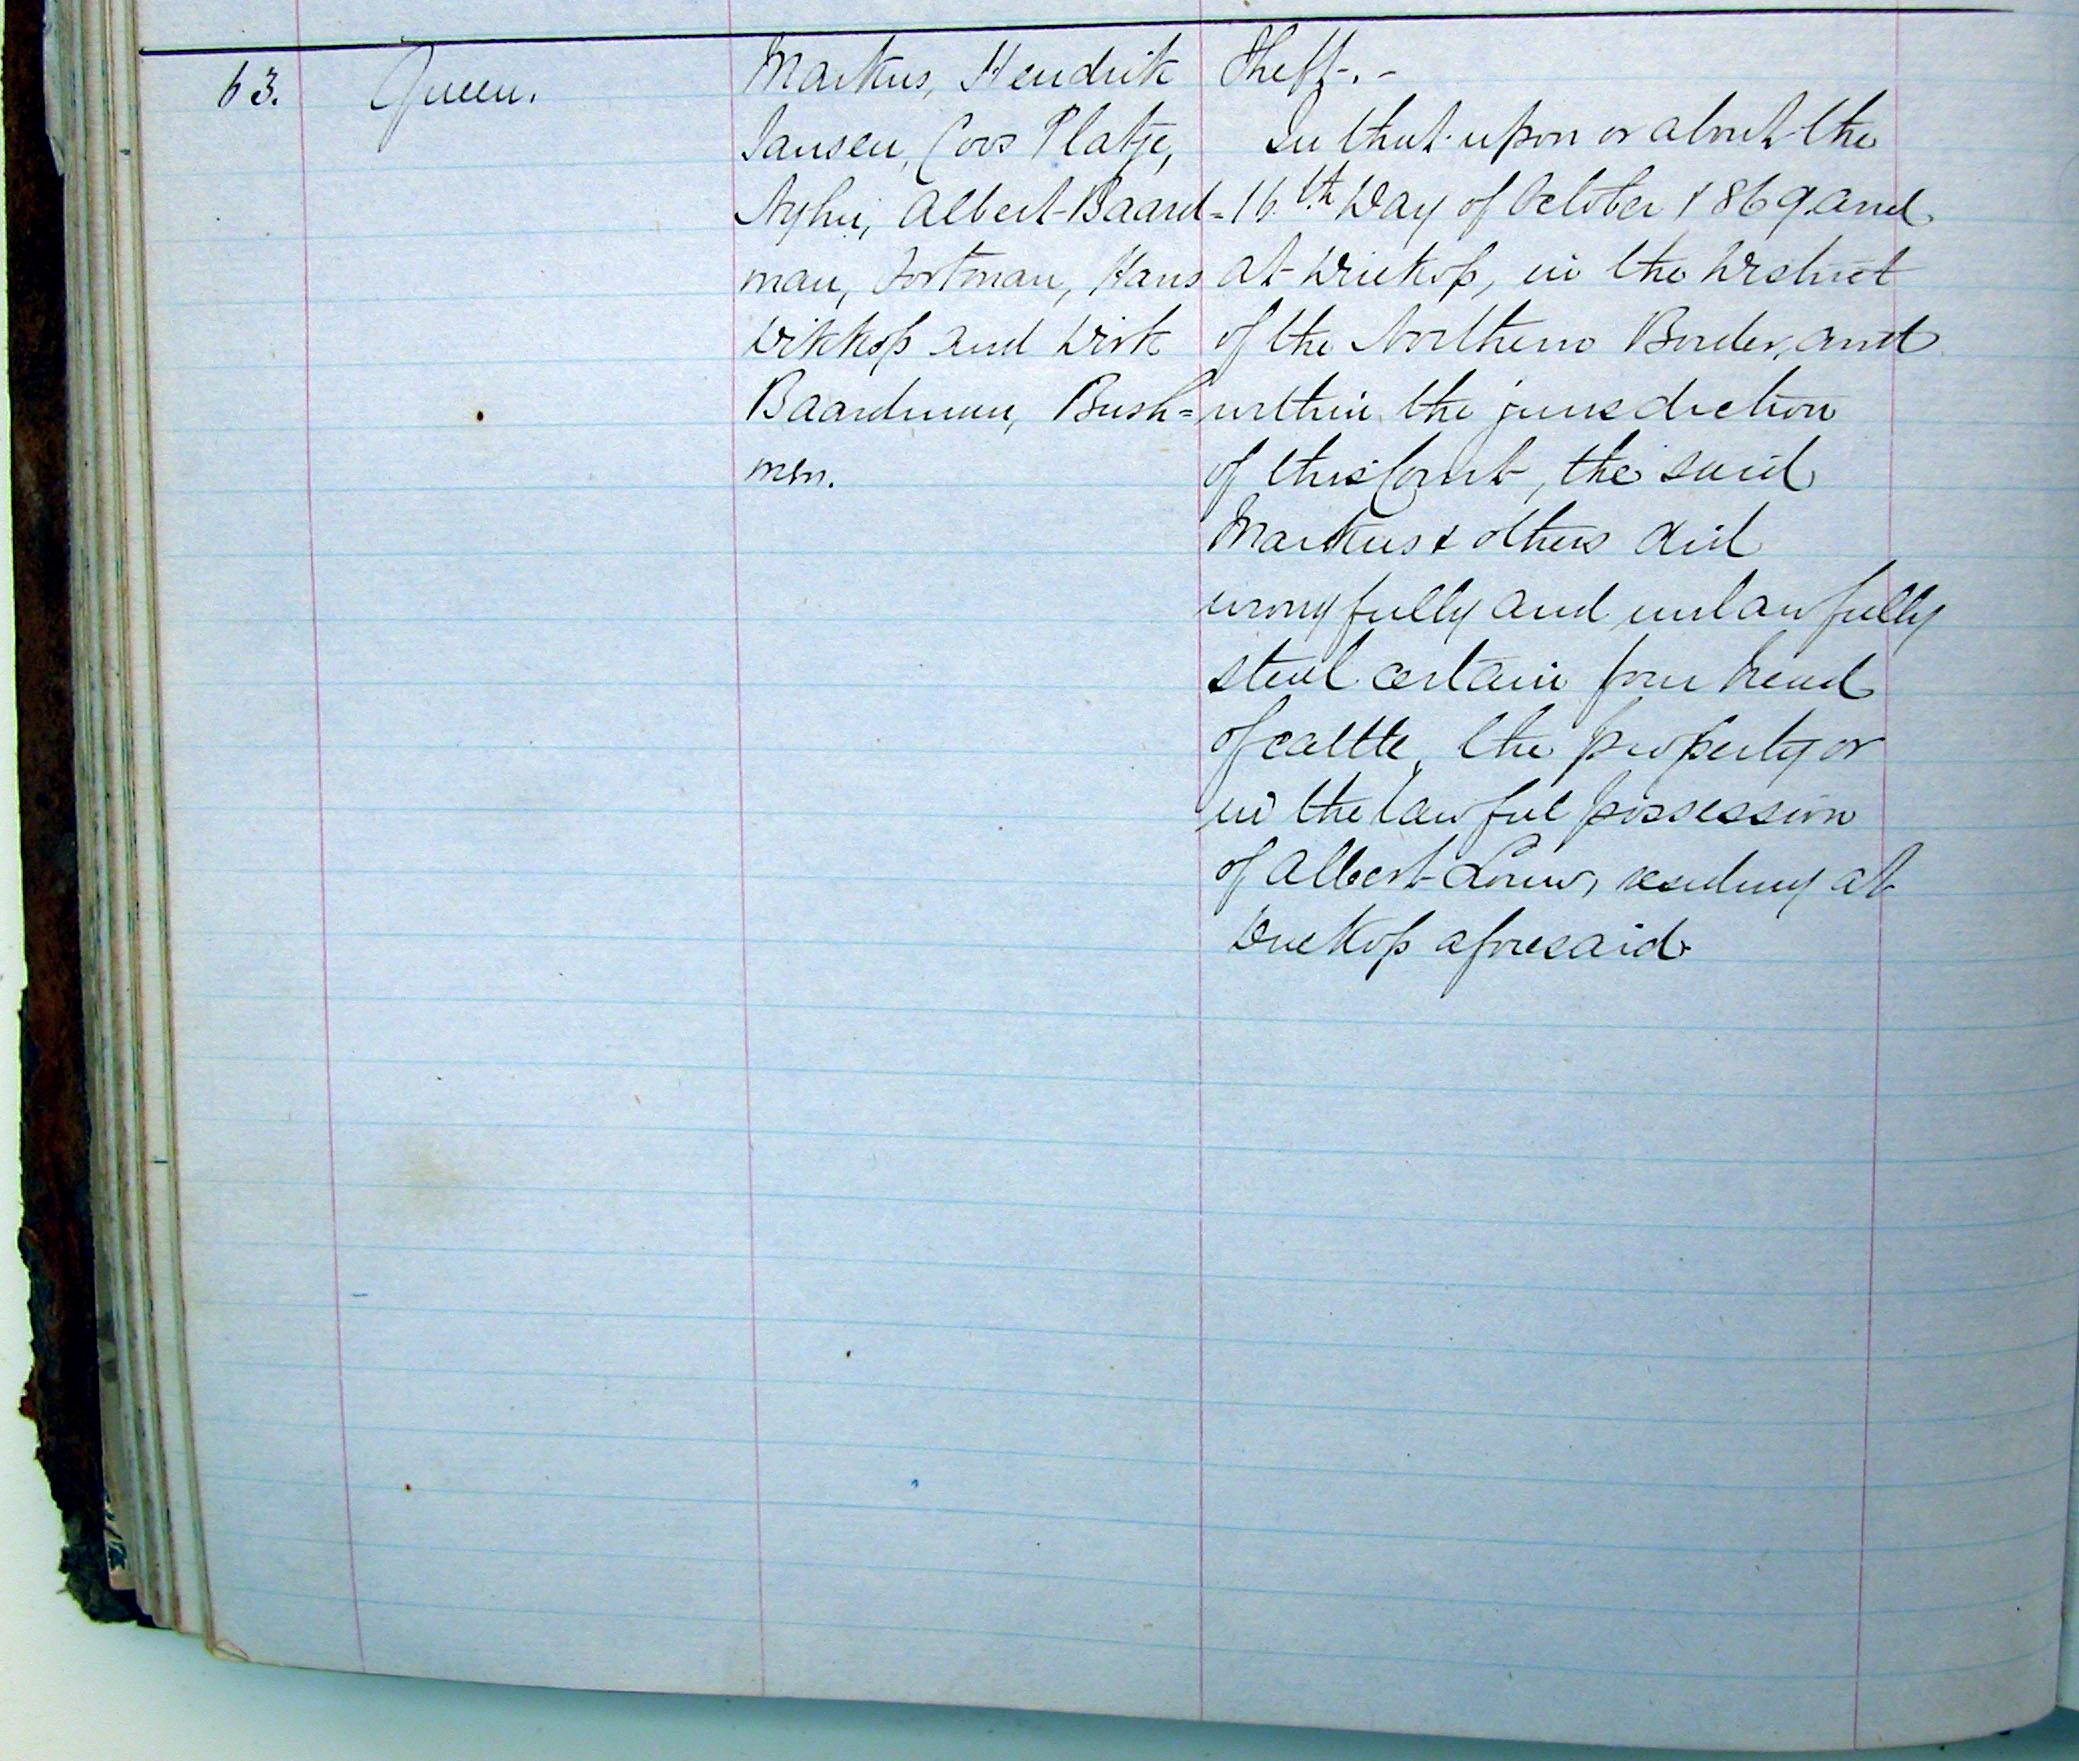 63.
Queen.
Markus, Hendrik
Jansen, Coos Platje,
Albert Baard=
man, Fortman, Hans
Dikkop and Dirk
Baardman, Bush=
men.
Theft.-
In that upon or about the
16.th Day of October 1869. and
at Driekop, in the District
of the Northern Border, and
within the jurisdiction
of this Court, the said
Markus & others did
wrongfully and unlawfully
steal certain four head
of cattle, the property or
in the lawful possession
of Albert Louw, residing at
Driekop aforesaid.